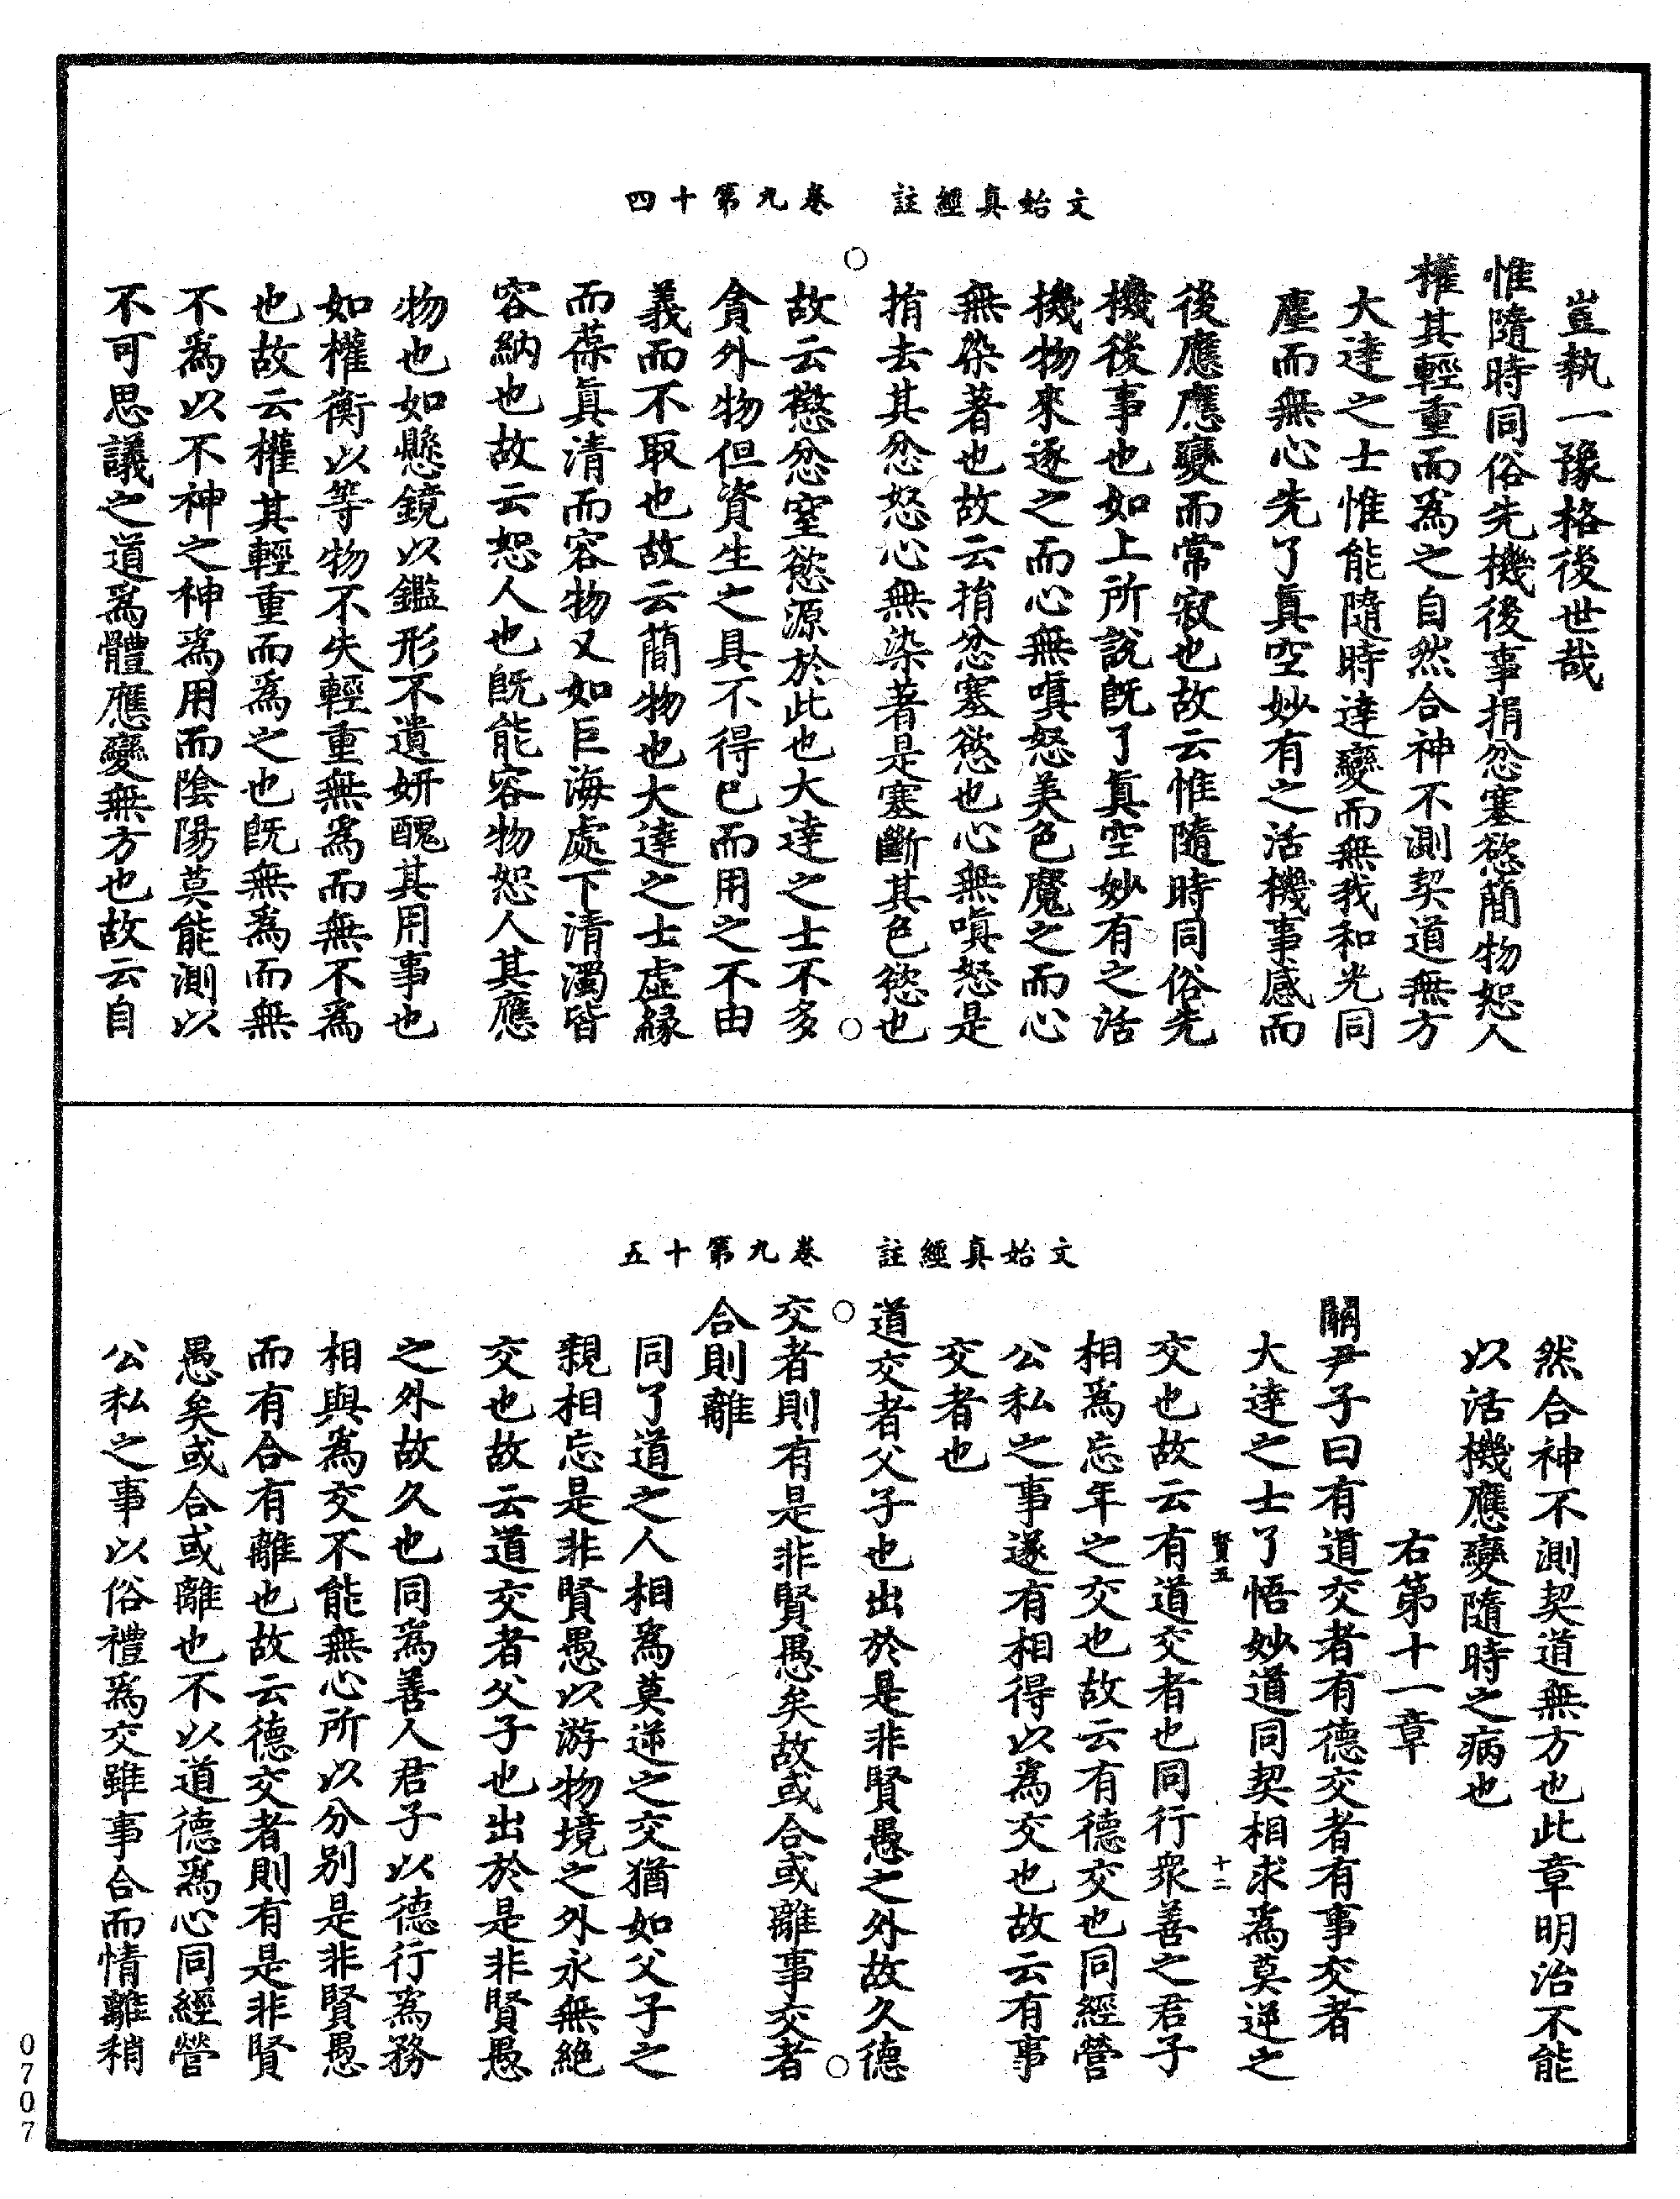 文始真經註　卷九第十四
豈執一豫格後世哉
惟隨時同俗先機後事捐忿塞慾簡物恕人
權其輕重而為之自然合神不測契道無方
大達之士惟能隨時達變而無我和光同
塵而無心先了真空妙有之活機事感而
後應應變而常寂也故云惟隨時同俗先
機後事也如上所說既了真空妙有之活
機物來逐之而心無嗔怒美色魔之而心
無染著也故云捐忿塞慾也心無嗔怒是
捐去其忿怒心無染著是塞斷其色慾也
故云懲忿窒慾源於此也大達之士不多
貪外物但資生之具不得已而用之不由
義而不取也故云簡物也大達之士虛緣
而葆真清而容物又如巨海處下清濁皆
容納也故云恕人也既能容物恕人其應
物也如懸鏡以鑑形不遺妍醜其用事也
如權衡以等物不失輕重無為而無不為
也故云權其輕重而為之也既無為而無
不為以不神之神為用而陰陽莫能測以
不可思議之道為體應變無方也故云自
文始真經註　卷九第十五
然合神不測契道無方也此章明治不能
以活機應變隨時之病也
右第十一章
關尹子曰有道交者有德交者有事交者
大達之士了悟妙道同契相求為莫逆之
賢五　十二
交也故云有道交者也同行眾善之君子
相為忘年之交也故云有德交也同經營
公私之事遂有相得以為交也故云有事
交者也
道交者父子也出於是非賢愚之外故久德
交者則有是非賢愚矣故或合或離事交者
合則離
同了道之人相為莫逆之交猶如父子之
親相忘是非賢愚以游物境之外永無絕
交也故云道交者父子也出於是非賢愚
之外故久也同為善人君子以德行為務
相與為交不能無心所以分別是非賢愚
而有合有離也故云德交者則有是非賢
愚矣或合或離也不以道德為心同經營
公私之事以俗禮為交雖事合而情離稍
0707